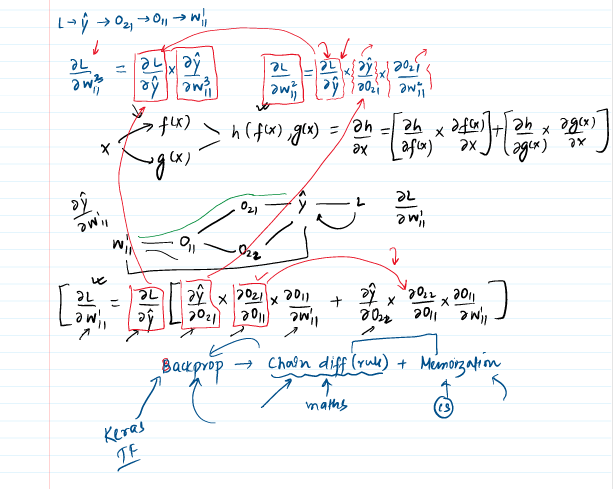 L → ŷ → O₂₁ → O₁₁ → w¹₁₁
∂L/∂w³₁₁ = ∂L/∂ŷ × ∂ŷ/∂w³₁₁   ∂L/∂w²₁₁ = ∂L/∂ŷ × ∂ŷ/∂O₂₁ × ∂O₂₁/∂w²₁₁
x → f(x) g(x) h(f(x), g(x)) = ∂h/∂x = [∂h/∂f(x) × ∂f(x)/∂x] + [∂h/∂g(x) × ∂g(x)/∂x]
∂ŷ/∂w¹₁₁   w¹₁₁ O₁₁ O₂₁ O₂₂ ŷ L   ∂L/∂w¹₁₁
[∂L/∂w¹₁₁ = ∂L/∂ŷ [∂ŷ/∂O₂₁ × ∂O₂₁/∂O₁₁ × ∂O₁₁/∂w¹₁₁ + ∂ŷ/∂O₂₂ × ∂O₂₂/∂O₁₁ × ∂O₁₁/∂w¹₁₁]
Backprop → Chain diff (rule) + Memoization
maths CS
Keras
TF